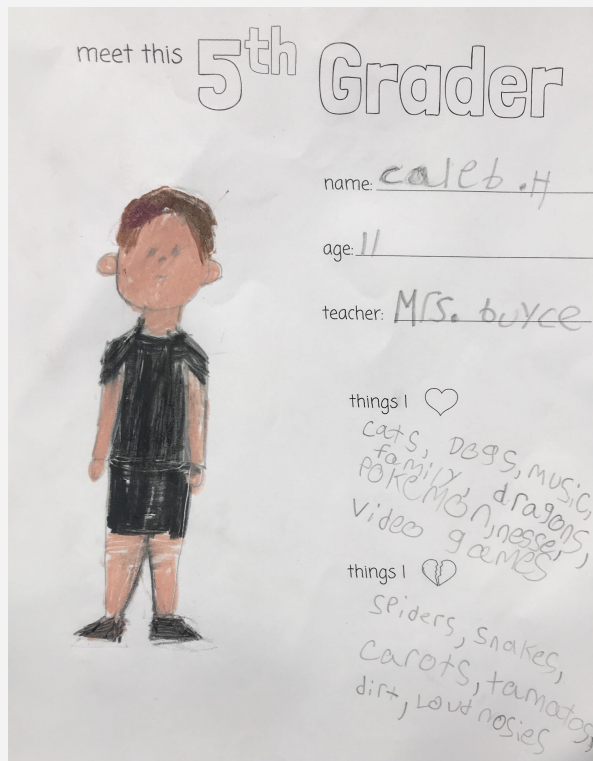 meet this 5th Grader
name: caleb .H
age: 11
teacher: Mrs. buyce
things I
cats, Dogs, music,
family, dragons,
POKEMON, nesse,
Video games
things I
spiders, snakes,
carots, tamatos,
dirt, Loud nosies